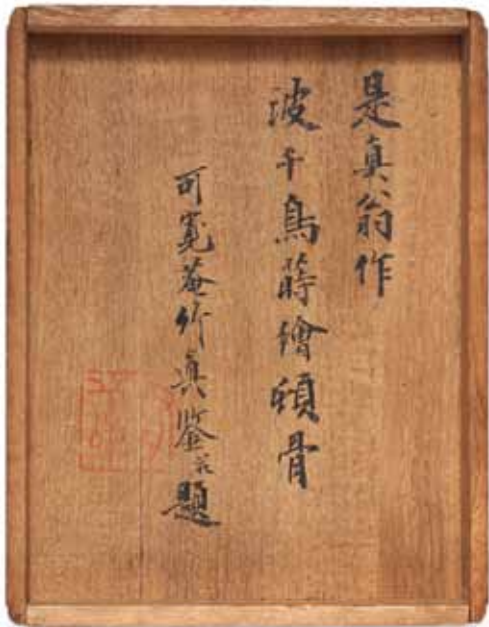 是真翁作
波千鳥蒔繪頓骨
可寛菴竹真鑒并題